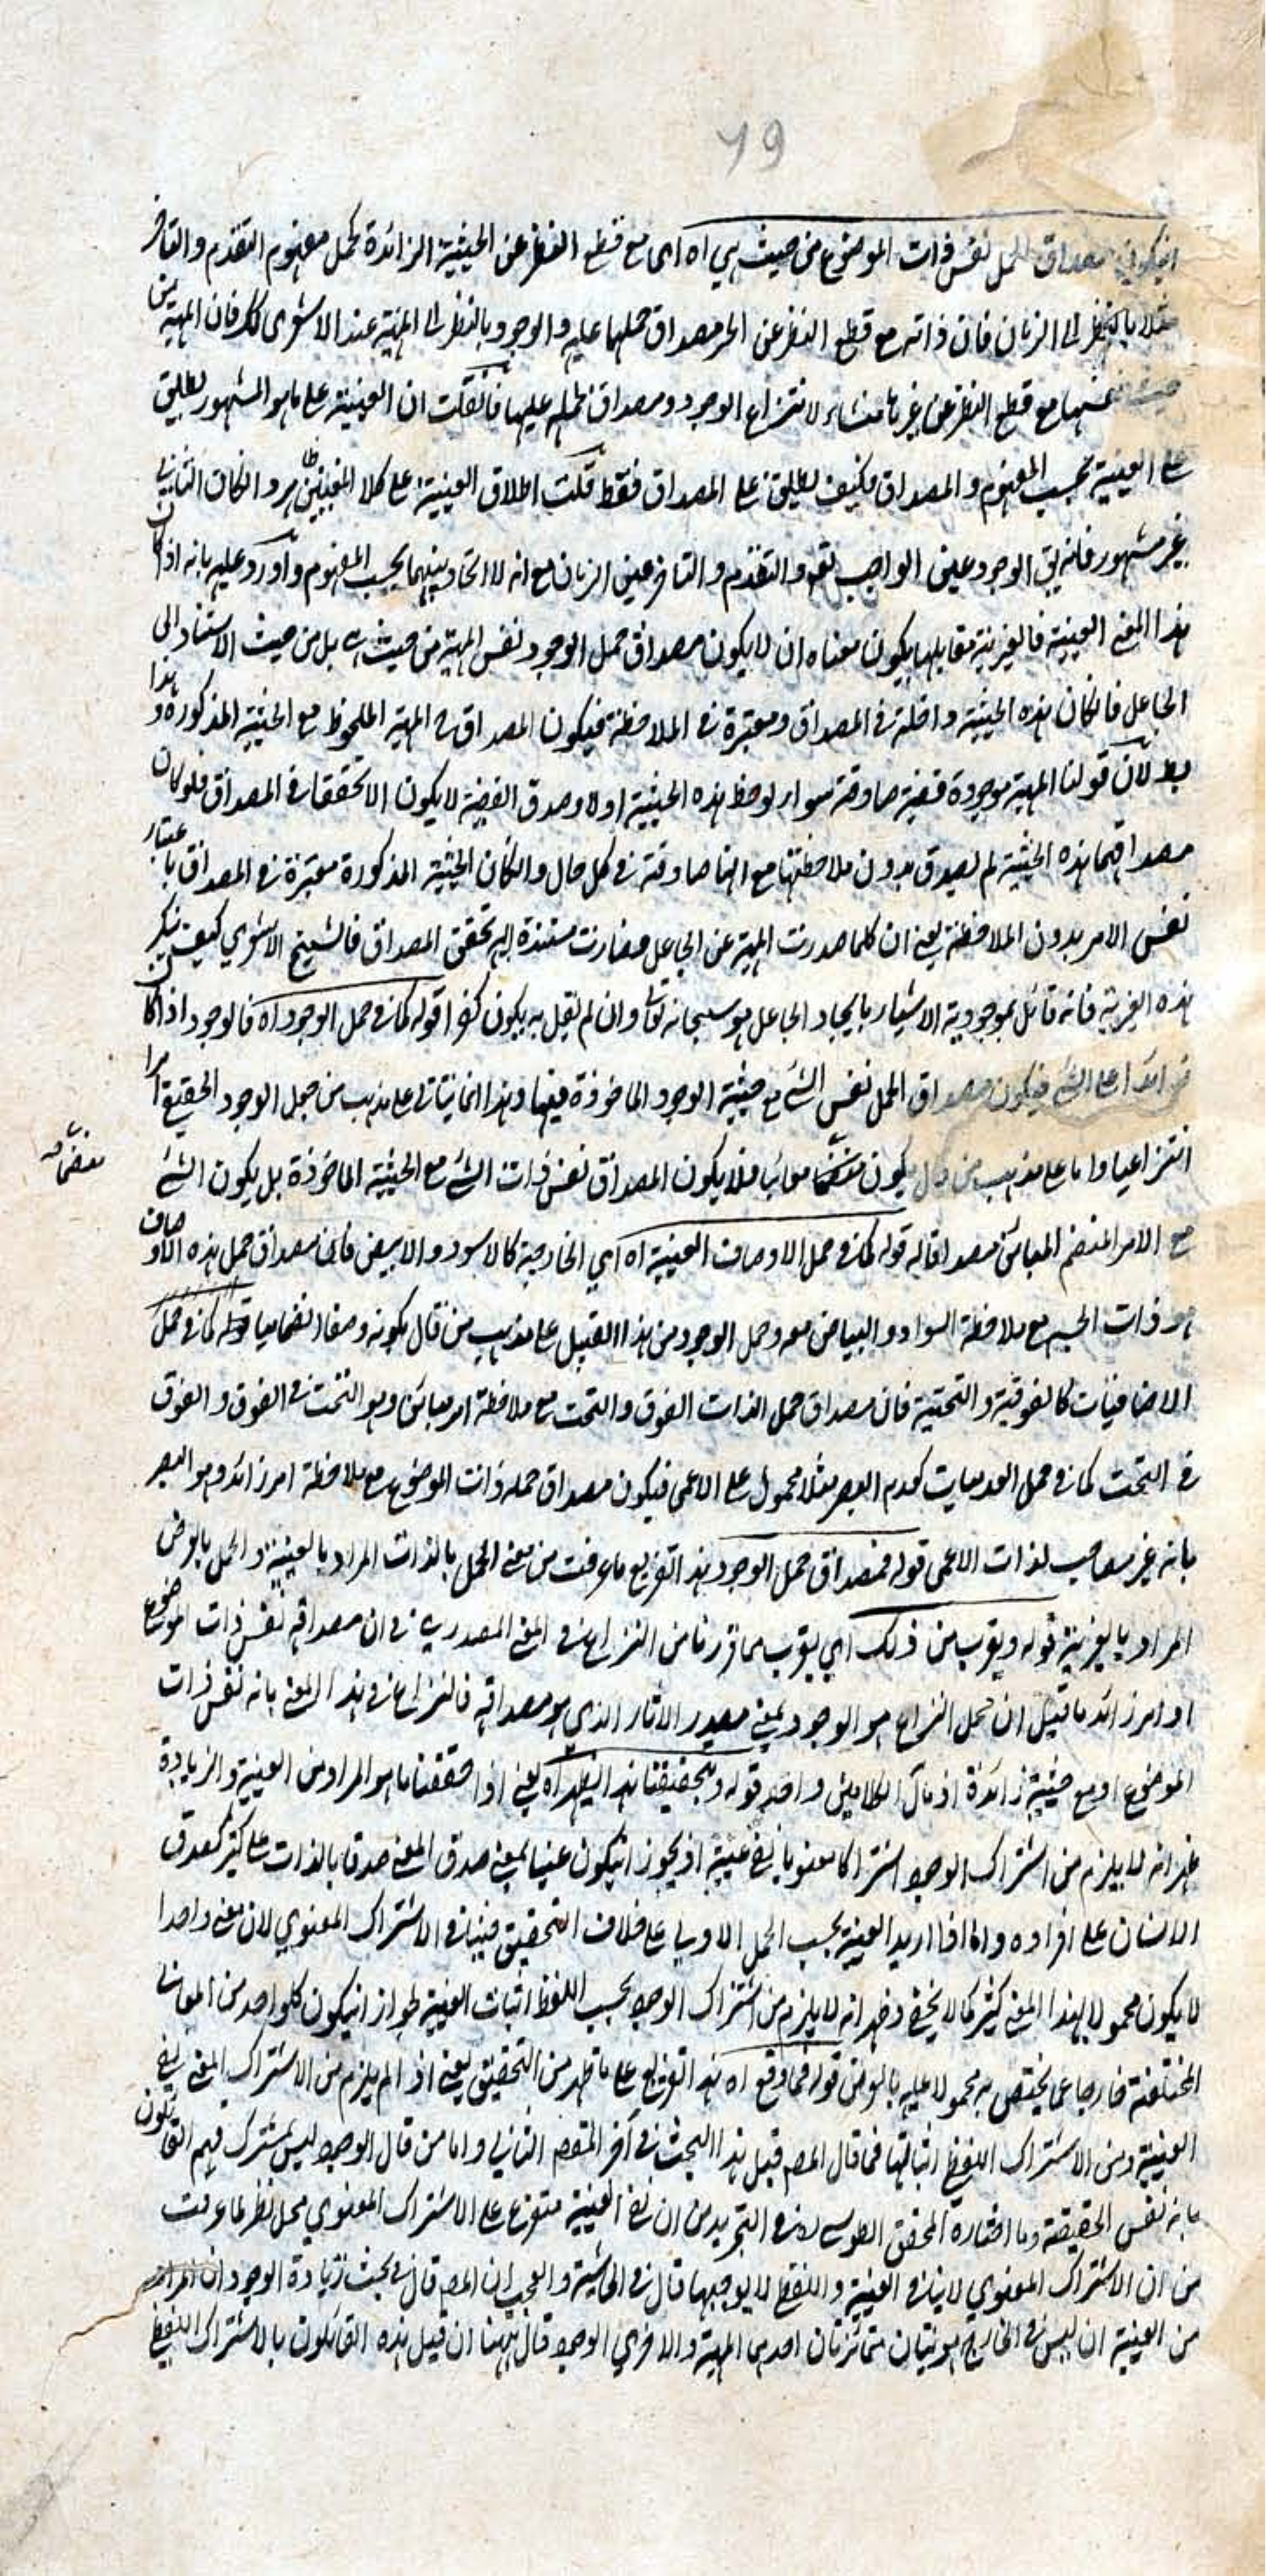 79
انيكون مصداق الحمل نفس ذات الموضوع من حيث هي اه اى مع قطع النظر عن الحيثية الزائدة كحمل مفهوم التقدم والتاخر
مثلا بالنظر الى الزمان فان ذاته مع قطع النظر عن مصداق حملهما عليه والوجود بالنظر الى المهية عند الاشعرى كك فان المهية من
حيث نفسها مع قطع النظر عن غيرها منشاء لانتزاع الوجود ومصداق لحمله عليها فانقلت ان العينية على ما هو المشهور يطلق
على العينية بحسب المفهوم والمصداق فكيف يطلق على المصداق فقط قلت اطلاق العينية على كلا المعنيين وانكان الثاني
غير مشهور فانه يق الوجود عين الواجب تعه والتقدم والتاخر عين الزمان مع انه لا اتحاد بينهما بحسب المفهوم واورد عليه بانه اذا كان
هذا المعنى العينية فالغيرية مقابلها يكون معناه ان لا يكون مصداق حمل الوجود نفس المهية من حيث هي بل من حيث الاستناد الى
الجاعل فانكان هذه الحيثية داخلة في المصداق ومعتبرة في الملاحظة فيكون المصداق هي المهية الملحوظ مع الحيثية المذكورة وهذا
بط لان قولنا المهية موجودة قضية صادقة سواء لوحظ هذه الحيثية اولا وصدق القضية لا يكون الا بتحققها في المصداق فلو كان
مصداقهما هذه الحيثية لم يصدق بدون ملاحظتها مع انها صادقة في كل حال وانكان الحيثية المذكورة معتبرة في المصداق باعتبار
نفس الامر بدون الملاحظة يعني ان كلما صدرت المهية عن الجاعل فصارت مستندة اليه تحقق المصداق فالشيخ الاشعري كيف ينكر
هذه الغيرية فانه قائل بموجودية الاشياء بايجاد الجاعل هو سبحانه تعالى وان لم يقل به يكون كفرا قوله كما في حمل الوجود اه فالوجود اذا كان
زائدا على الشئ فيكون مصداق الحمل نفس الشئ مع حيثية الوجود الماخوذة فيها وهذا انما يتاتى على مذهب من جعل الوجود الحقيقي امرا
انتزاعيا واما على مذهب من قال يكون منضما مباينا فلا يكون المصداق نفس ذات الشئ مع الحيثية الماخوذة بل يكون الشئ
منضما صح
مع الامر المنضم المباين مصداقا له قوله كما في حمل الاوصاف العينية اه اي الخارجية كالاسود والابيض فان مصداق حمل هذه الاوصاف
هو ذات الجسم مع ملاحظة السواد والبياض معه وحمل الوجود من هذا القبيل على مذهب من قال بكونه وصفا انضماميا قوله كما في حمل
الاضافيات كالفوقية والتحتية فان مصداق حمل الذات الفوق والتحت مع ملاحظة امر مباين وهو التحت في الفوق والفوق
في التحت كما في حمل العدميات كعدم البصر مثلا محمول على الاعمى فيكون مصداق حمله ذات الموضوع مع ملاحظة امر زائد وهو البصر
بانه غير مصاحب لذات الاعمى قوله فمصداق حمل الوجود هذا تفريع ما عرفت من معنى الحمل بالذات المراد بالعينية والحمل بالعرض
المراد بالغيرية قوله ويقرب من ذلك اي يقرب مما قررنا من النزاع في المعنى المصدري في ان مصداقه نفس ذات الموضوع
او امر زائد ما قيل ان محل النزاع هو الوجود بمعنى مصدر الاثار الذي هو مصداقه فالنزاع في هذا المعنى بانه نفس ذات
الموضوع او مع حيثية زائدة اذ مآل الكلامين واحد قوله وبتحقيقنا هذا ليظهر اه يعني اذا حققنا ما هو المراد من العينية والزيادة
ظهر انه لا يلزم من اشتراك الوجود اشتراكا معنويا نفي عينية اذ يجوز انيكون عينا بمعنى صدق المعنى صدقا بالذات على كثير كصدق
الانسان على افراده واما اذا اريد العينية بحسب الحمل الاولي على خلاف التحقيق فينافي الاشتراك المعنوي لان معنى واحدا
لا يكون محمولا بهذا المعنى كثير كما لا يخفى وظهر انه لا يلزم من اشتراك الوجود بحسب اللفظ اثبات العينية لجواز انيكون كل واحد من المعاني
المختلفة خارجا عما يختص به محمولا عليه بالعرض قوله فما وقع اه هذا تفريع على ما ظهر من التحقيق يعني اذا لم يلزم من الاشتراك المعنى نفي
العينية ومن الاشتراك اللفظي اثباتها فما قال المصه قبيل هذا البحث في آخر المقصد الثاني واما من قال الوجود ليس بمشترك فهم القائلون
بانه نفس الحقيقة وما اختاره المحقق الطوسي في التجريد من ان نفي العينية متفرع على الاشتراك المعنوي محل نظر لما عرفت
من ان الاشتراك المعنوي لا ينافي العينية واللفظي لا يوجبها قال في الحاشية والعجب ان المصه قال في بحث زيادة الوجود ان المراد
من العينية ان ليس في الخارج هويتان متمائزتان احدهما المهية والاخرى الوجود قال ههنا ان قبيل هذه القائلون بالاشتراك اللفظي